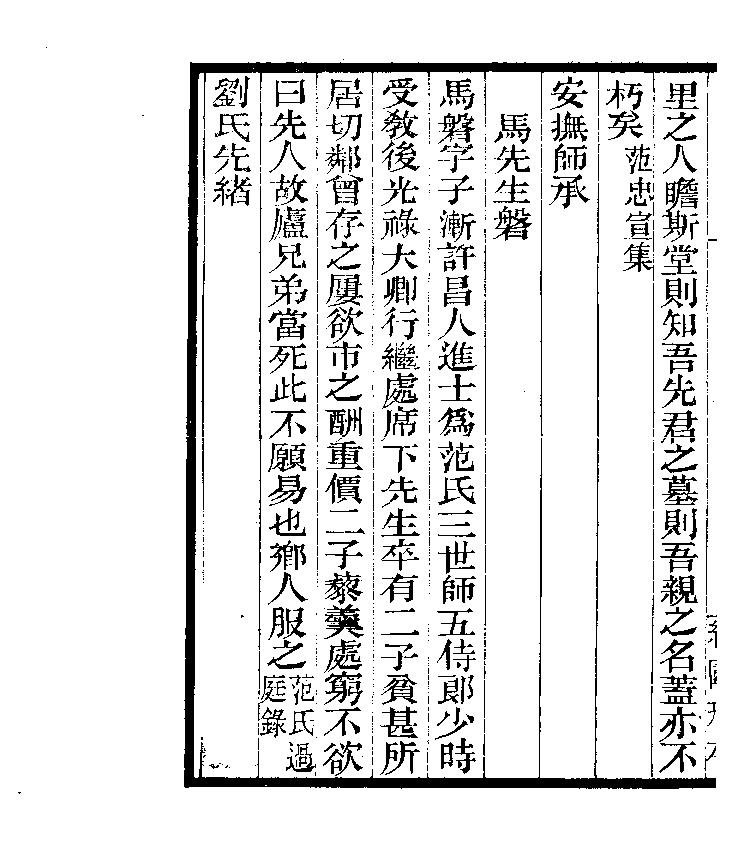 里之人瞻斯堂則知吾先君之墓則吾親之名蓋亦不
朽矣范忠宣集
安撫師承
馬先生磐
馬磐字子漸許昌人進士爲范氏三世師五侍郎少時
受教後光祿大卿行繼處席下先生卒有二子貧甚所
居切鄰曾存之屢欲市之酬重價二子藜羹處窮不欲
曰先人故廬兄弟當死此不願易也鄉人服之范氏過庭錄
劉氏先緒